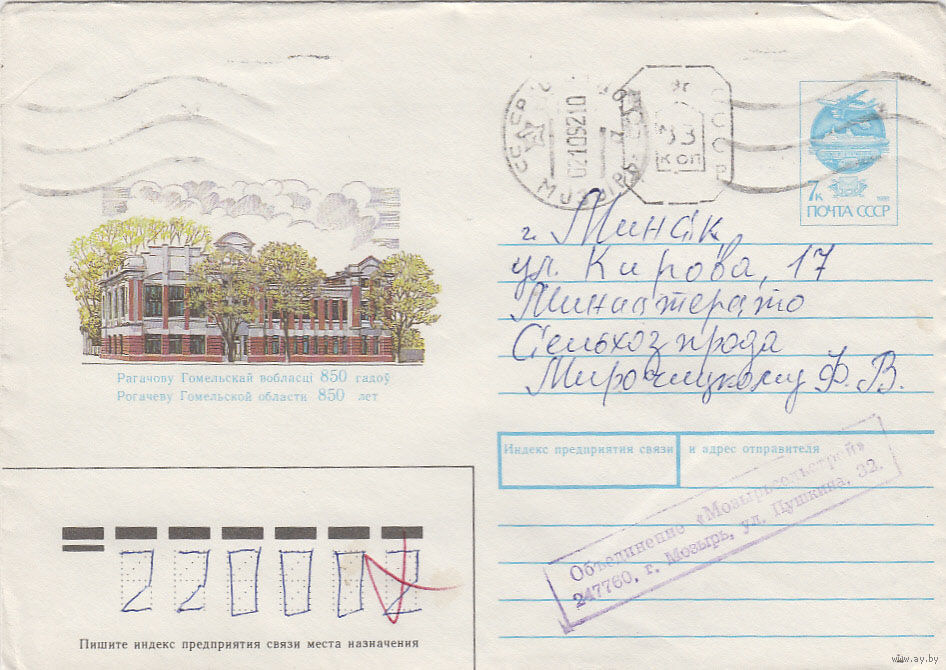 СССР
02109210
МОЗЫРЬ
33
КОП
СССР
7к
ПОЧТА СССР
г. Минск,
ул. Кирова, 17
Министерство
Сельхозпрода
Мировицкому Ф. В.
Рагачову Гомельскай вобласці 850 гадоў
Рогачеву Гомельской области 850 лет
Индекс предприятия связи и адрес отправителя
Объединение «Мозырьсельстрой»
247760, г. Мозырь, ул. Пушкина, 32.
Пишите индекс предприятия связи места назначения
www.ay.by